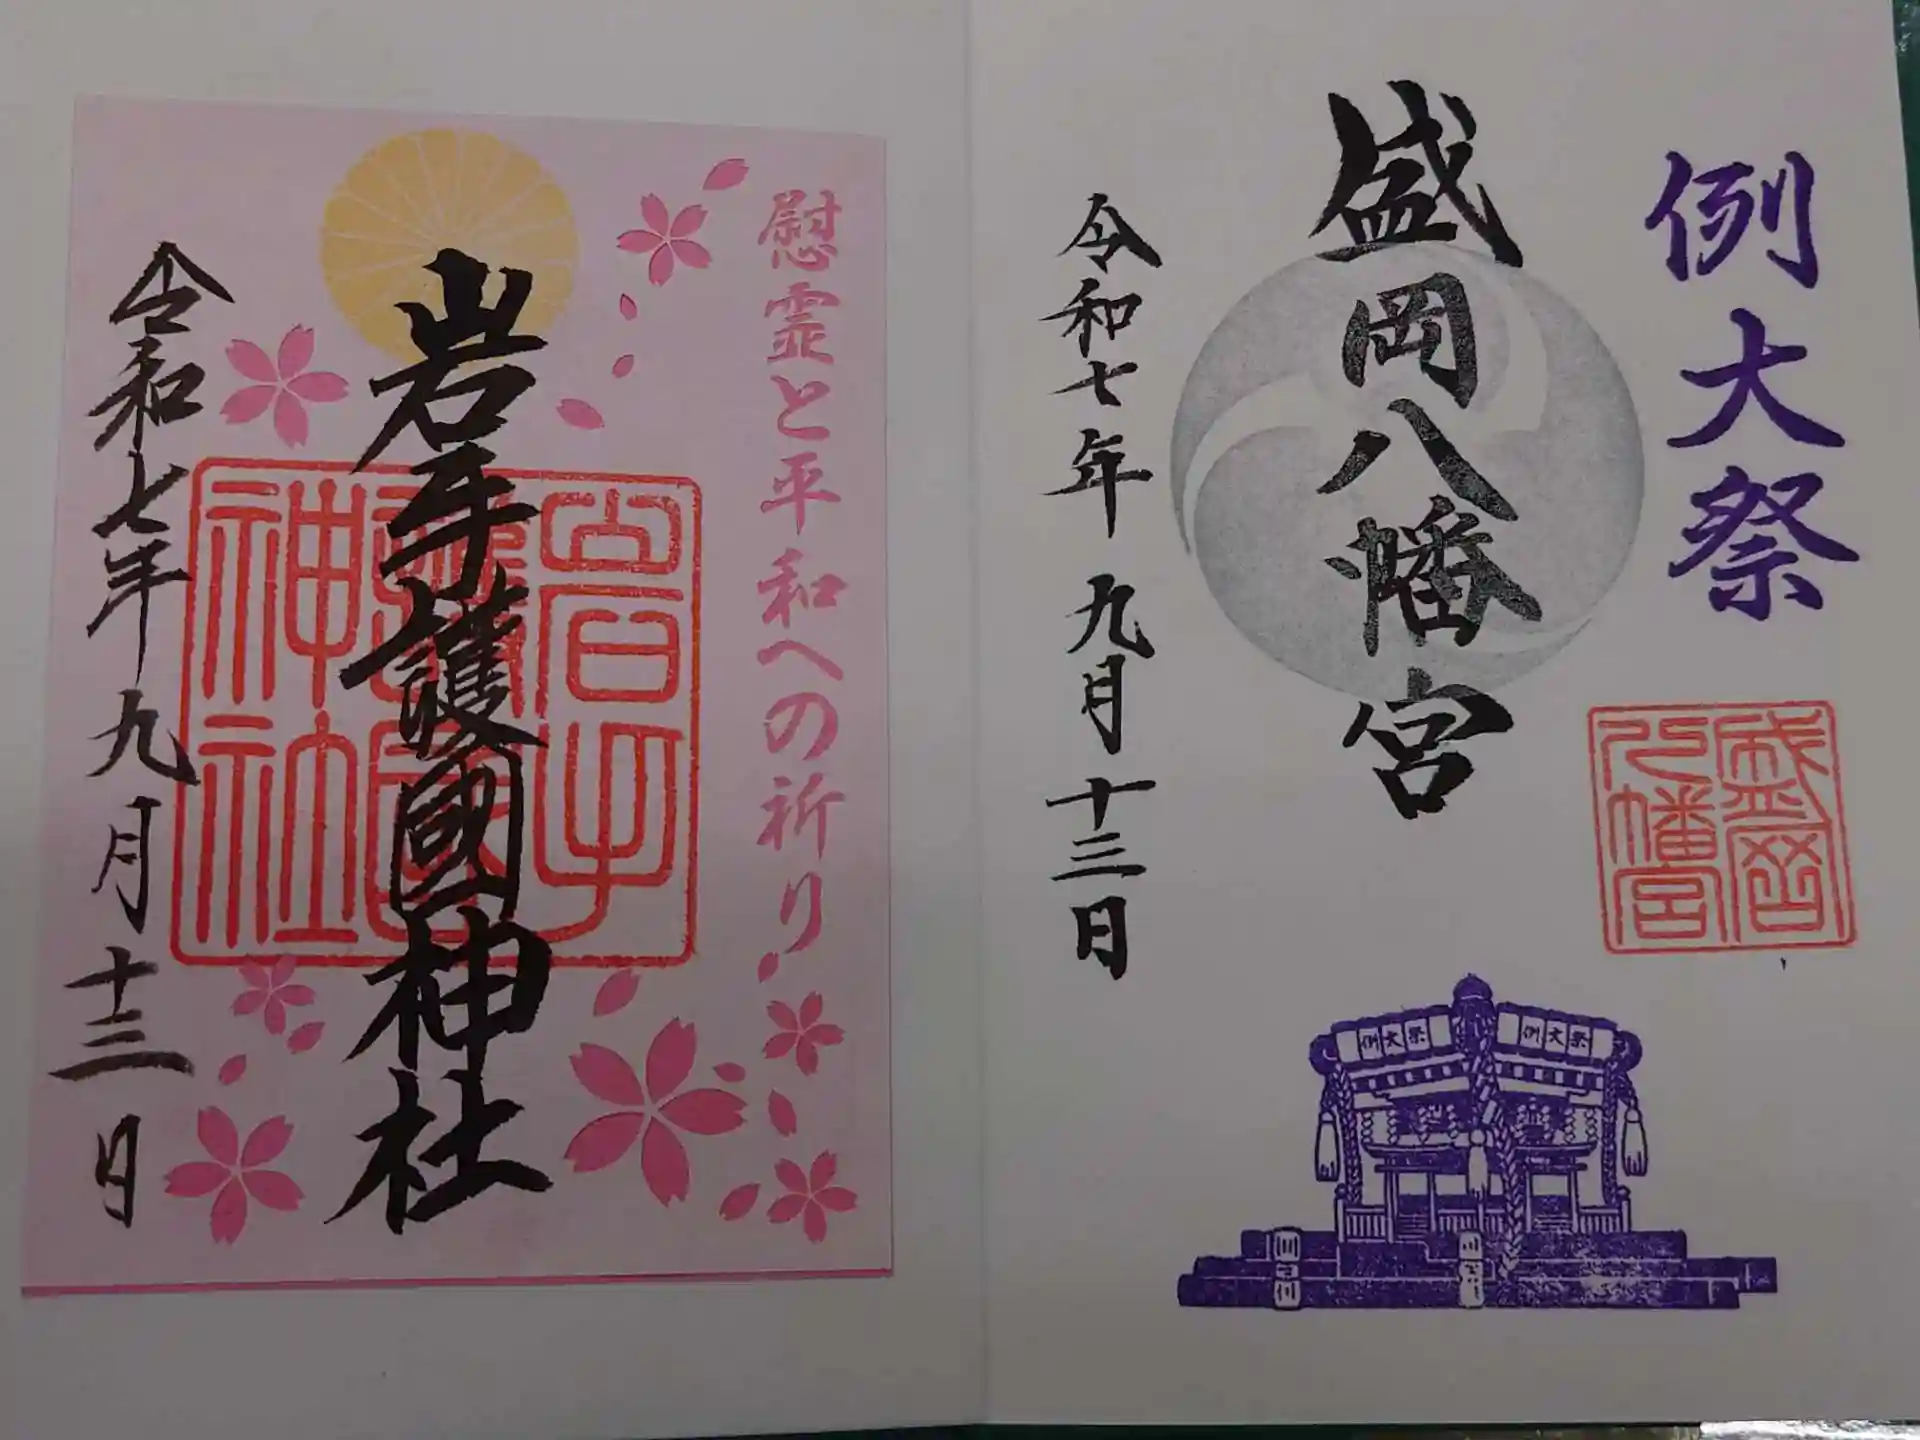 例大祭
盛岡八幡宮
令和七年九月十三日
盛岡八幡宮
例大祭
例大祭
慰霊と平和への祈り
岩手護國神社
令和七年九月十三日
岩手護國神社